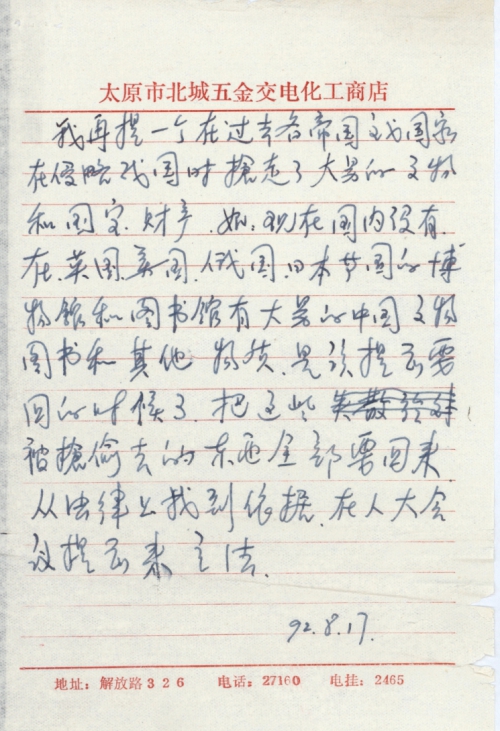 太原市北城五金交电化工商店
我再提一个在过去各帝国主义国家
在侵略我国时抢走了大量的文物
和国宝、财产、如:现在国内没有
在英国、美国、俄国、日本等国的博
物馆和图书馆有大量的中国文物
图书和其他物质、是该提出要
回的时候了、把这些
被抢偷去的东西全部要回来
从法律上找到依据、在人大会
议提出来立法、
92.8.17.
地址:解放路326 电话:27160 电挂:2465